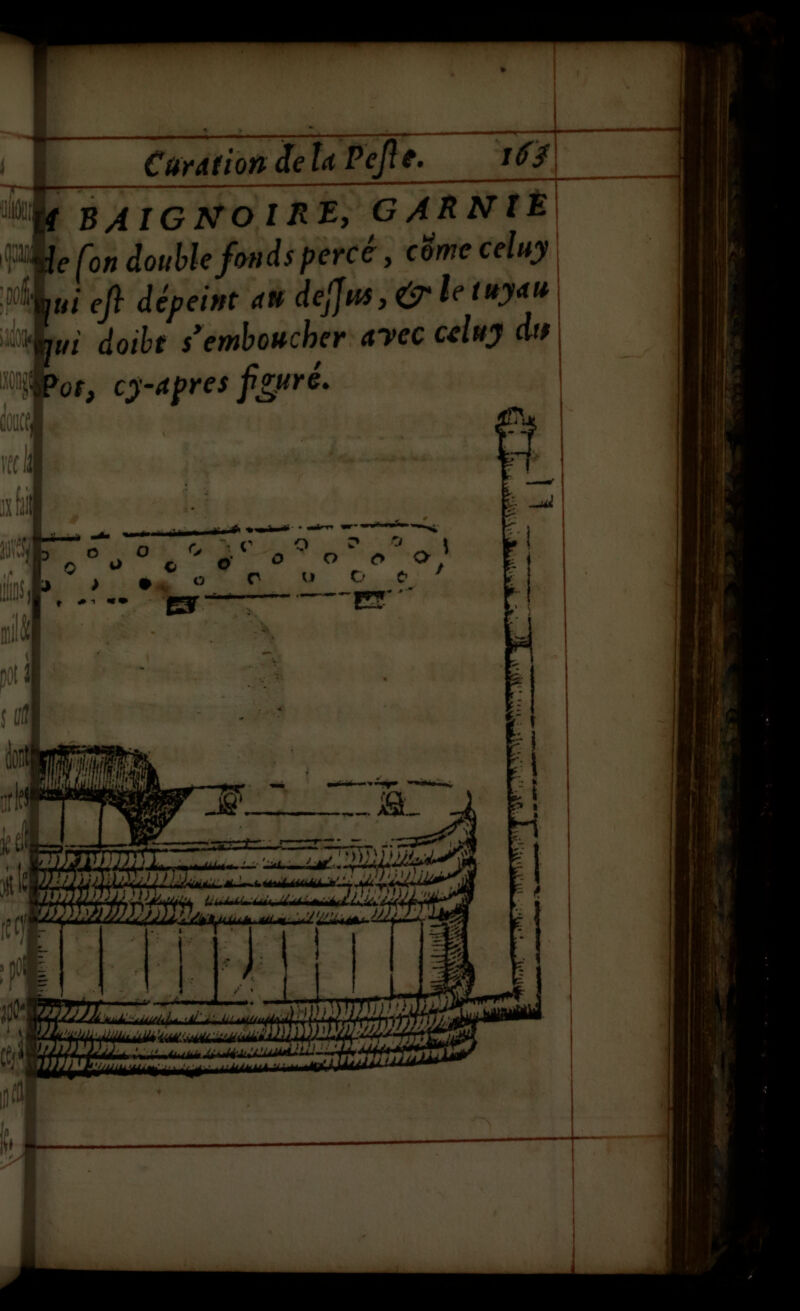 Curation de la Peſte. 163
BAIGNOIRE, GARNIE
de ſon double fonds percé, cõme celuy
qui eſt dépeint au deſſus, & le tuyau
qui doibt s'emboucher avec celuy du
Pot, cy-apres figuré.